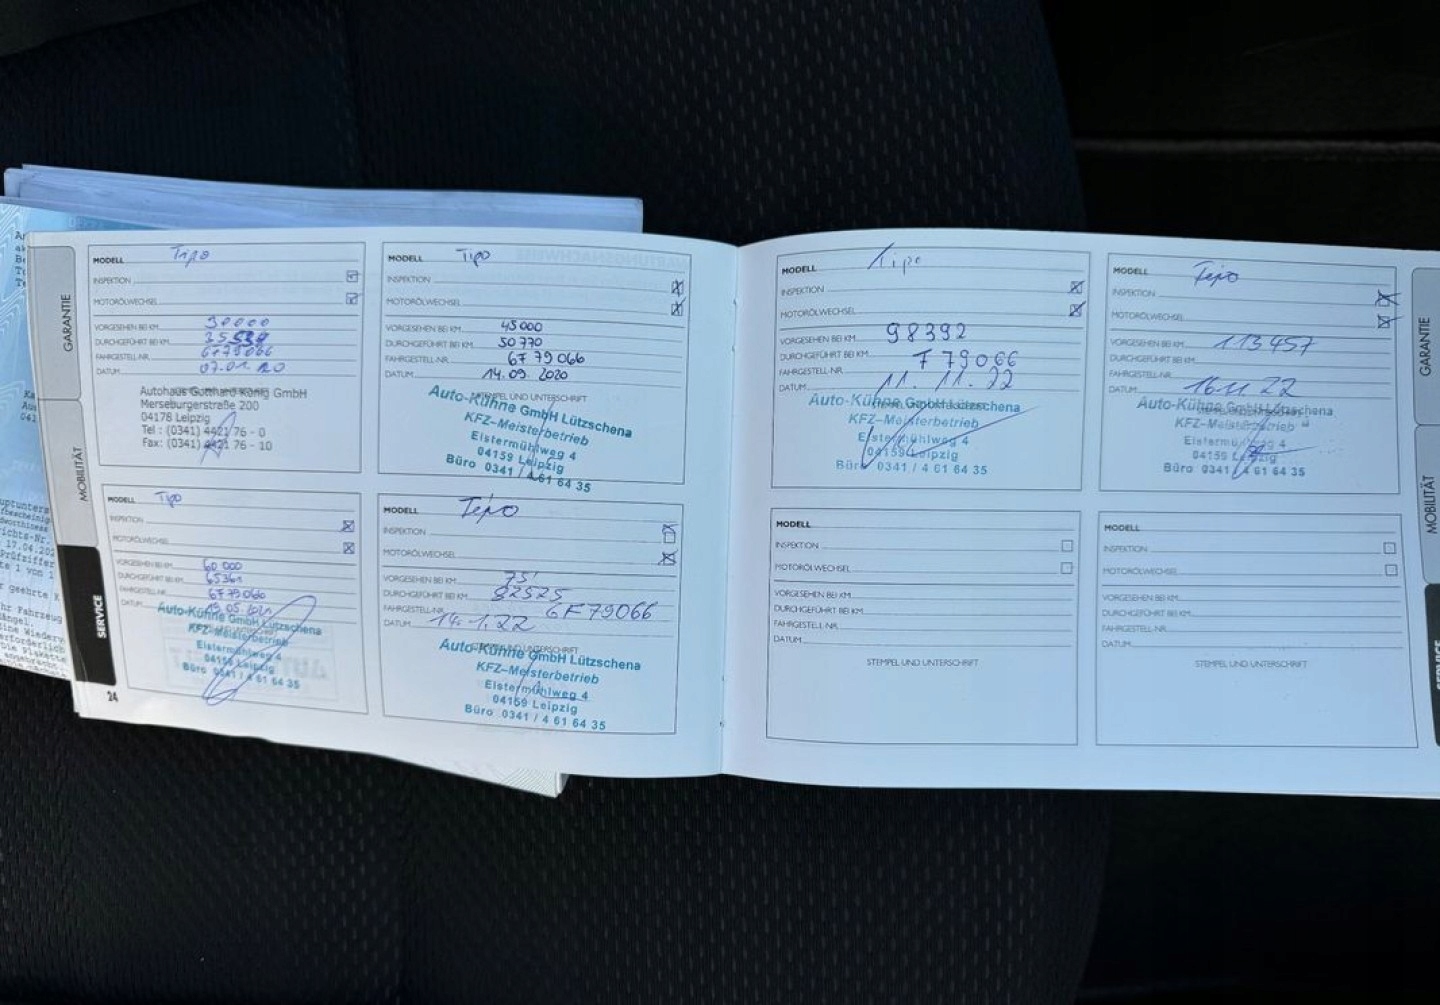 GARANTIE
MOBILITÄT
SERVICE
24
MODELL Tipo
INSPEKTION ☑
MOTORÖLWECHSEL ☑
VORGESEHEN BEI KM 30000
DURCHGEFÜHRT BEI KM
FAHRGESTELL-NR. 6F79066
DATUM 07.01.20
Autohaus Gotthard König GmbH
Merseburgerstraße 200
04178 Leipzig
Tel : (0341) 4421 76 - 0
Fax: (0341) 4421 76 - 10
MODELL Tipo
INSPEKTION ☒
MOTORÖLWECHSEL ☒
VORGESEHEN BEI KM 45000
DURCHGEFÜHRT BEI KM 50770
FAHRGESTELL-NR. 6F 79066
DATUM 14.09.2020
STEMPEL UND UNTERSCHRIFT
Auto-Kühne GmbH Lützschena
KFZ-Meisterbetrieb
Elstermühlweg 4
04159 Leipzig
Büro 0341 / 4 61 64 35
MODELL Tipo
INSPEKTION ☒
MOTORÖLWECHSEL ☒
VORGESEHEN BEI KM 60 000
DURCHGEFÜHRT BEI KM 65361
FAHRGESTELL-NR. 6F79066
DATUM 19.05.2021
Auto-Kühne GmbH Lützschena
KFZ-Meisterbetrieb
Elstermühlweg 4
04159 Leipzig
Büro 0341 / 4 61 64 35
MODELL Tipo
INSPEKTION ☒
MOTORÖLWECHSEL ☒
VORGESEHEN BEI KM 75'
DURCHGEFÜHRT BEI KM 82525
FAHRGESTELL-NR. 6F79066
DATUM 14.1.22
STEMPEL UND UNTERSCHRIFT
Auto-Kühne GmbH Lützschena
KFZ-Meisterbetrieb
Elstermühlweg 4
04159 Leipzig
Büro 0341 / 4 61 64 35
MODELL Tipo
INSPEKTION ☒
MOTORÖLWECHSEL ☒
VORGESEHEN BEI KM 98392
DURCHGEFÜHRT BEI KM
FAHRGESTELL-NR. F 79066
DATUM 11.11.22
Auto-Kühne GmbH Lützschena
KFZ-Meisterbetrieb
Elstermühlweg 4
04159 Leipzig
Büro 0341 / 4 61 64 35
MODELL Tipo
INSPEKTION ☒
MOTORÖLWECHSEL ☒
VORGESEHEN BEI KM 113457
DURCHGEFÜHRT BEI KM
FAHRGESTELL-NR.
DATUM 16.11.22
Auto-Kühne GmbH Lützschena
KFZ-Meisterbetrieb
Elstermühlweg 4
04159 Leipzig
Büro 0341 / 4 61 64 35
MODELL
INSPEKTION ☐
MOTORÖLWECHSEL ☐
VORGESEHEN BEI KM
DURCHGEFÜHRT BEI KM
FAHRGESTELL-NR.
DATUM
STEMPEL UND UNTERSCHRIFT
MODELL
INSPEKTION ☐
MOTORÖLWECHSEL ☐
VORGESEHEN BEI KM
DURCHGEFÜHRT BEI KM
FAHRGESTELL-NR.
DATUM
STEMPEL UND UNTERSCHRIFT
GARANTIE
MOBILITÄT
SERVICE